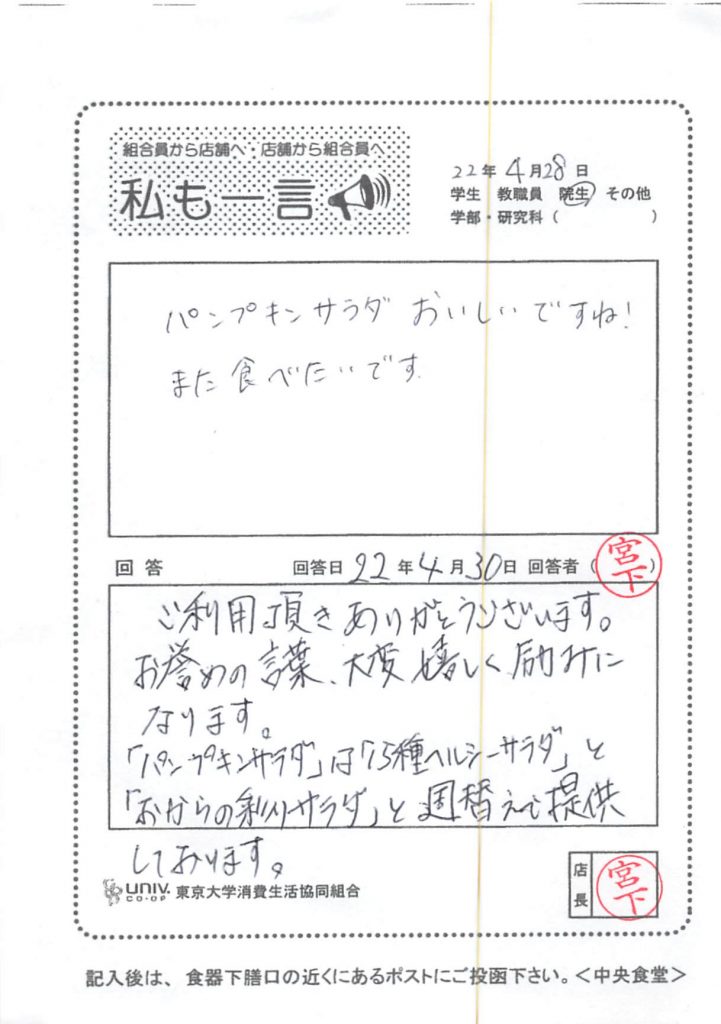 組合員から店舗へ・店舗から組合員へ
私も一言
22年4月28日
学生 教職員 院生 その他
学部・研究科( )
パンプキンサラダ おいしいですね!
また食べたいです
回答 回答日 22年4月30日 回答者(宮下)
ご利用頂きありがとうございます。
お誉めの言葉、大変嬉しく励みに
なります。
「パンプキンサラダ」は「15種ヘルシーサラダ」と
「おからの彩りサラダ」と週替えで提供
しております。
UNIV.
CO-OP
東京大学消費生活協同組合
店長
宮下
記入後は、食器下膳口の近くにあるポストにご投函下さい。<中央食堂>